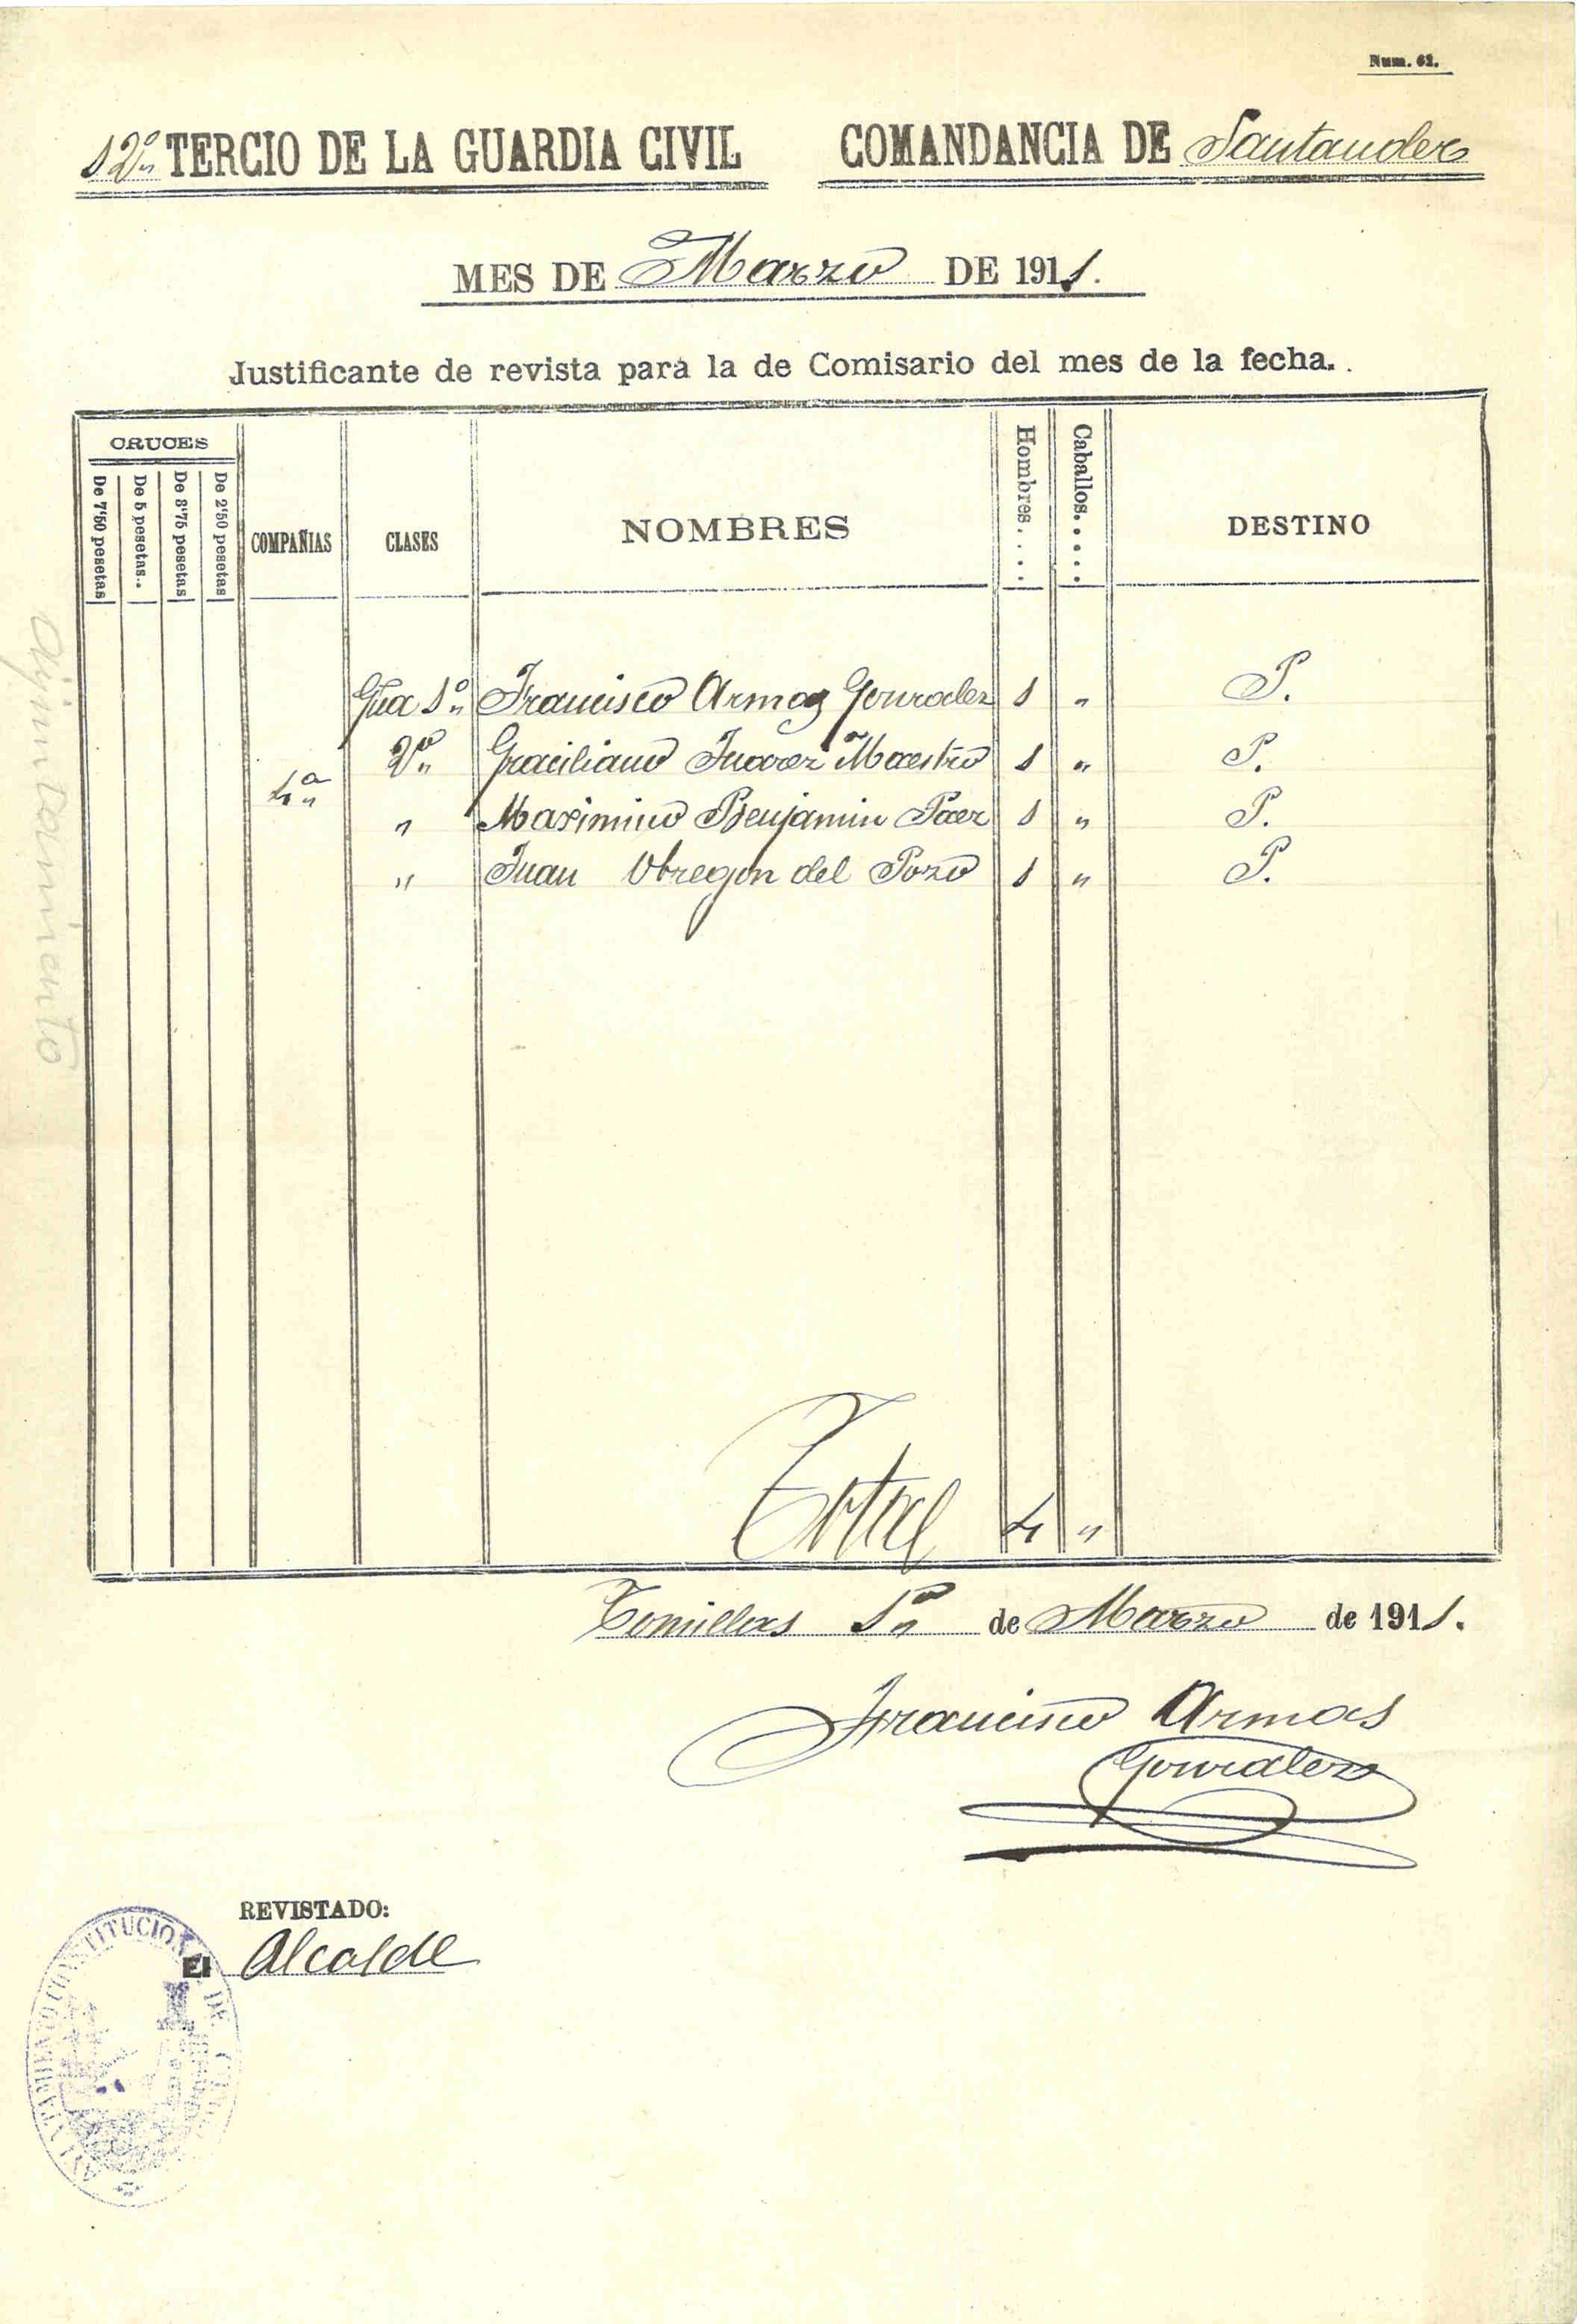 Num. 62.
12º TERCIO DE LA GUARDIA CIVIL COMANDANCIA DE Santander
MES DE Marzo DE 1911.
Justificante de revista para la de Comisario del mes de la fecha.
CRUCES
De 7'50 pesetas
De 5 pesetas..
De 3'75 pesetas
De 2'50 pesetas
COMPAÑIAS
CLASES
NOMBRES
Hombres. . . .
Caballos. . . . .
DESTINO
Gua 1º Francisco Armas Gonzalez 1 " P.
2º Graciliano Juarez Maestro 1 " P.
4ª
" Maximino Benjamin Paez 1 " P.
" Juan Obregon del Pozo 1 " P.
Total 4 "
Comillas 1º de Marzo de 1911.
Francisco Armas
Gonzalez
REVISTADO:
El Alcalde
AYUNTAMIENTO CONSTITUCIONAL DE
Ayuntamiento